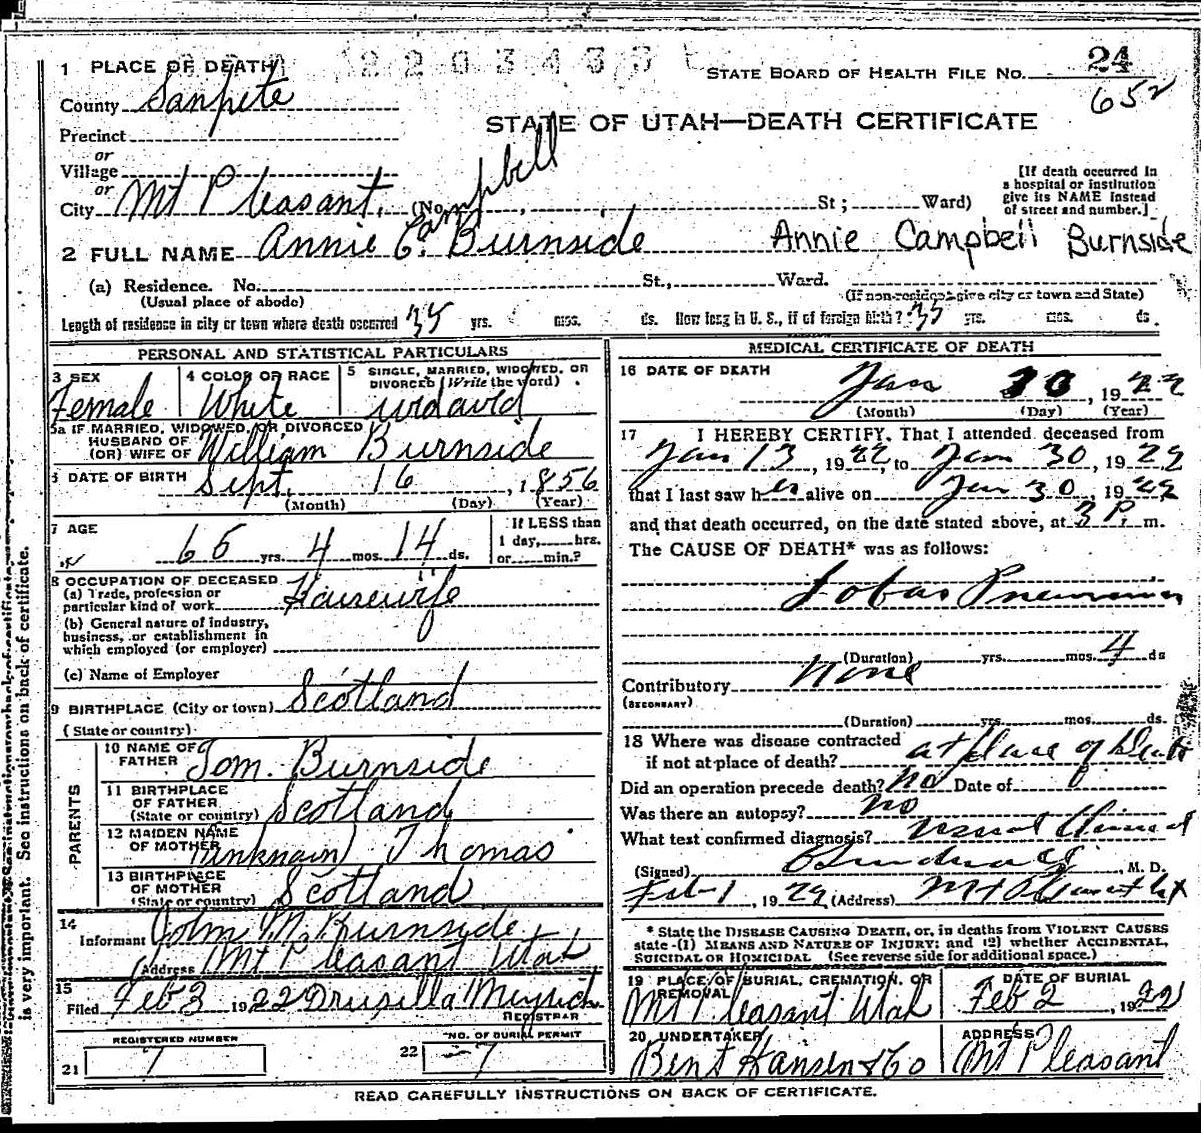 1 PLACE OF DEATH
STATE BOARD OF HEALTH FILE NO. 24
652
County Sanpete
STATE OF UTAH—DEATH CERTIFICATE
Precinct
or
Village
or
City Mt Pleasant, (No. St; Ward)
[If death occurred in a hospital or institution give its NAME instead of street and number.]
Campbell
2 FULL NAME Annie C. Burnside Annie Campbell Burnside
(a) Residence. No. St., Ward.
(Usual place of abode) (If non-resident give city or town and State)
Length of residence in city or town where death occurred 35 yrs. mos. ds. How long in U. S., if of foreign birth? 35 yrs. mos. ds.
PERSONAL AND STATISTICAL PARTICULARS
3 SEX Female
4 COLOR OR RACE White
5 SINGLE, MARRIED, WIDOWED, OR DIVORCED (Write the word)
5a IF MARRIED, WIDOWED, OR DIVORCED
HUSBAND OF
(OR) WIFE OF William Burnside
6 DATE OF BIRTH Sept. 16, 1856
(Month) (Day) (Year)
7 AGE 65 yrs. 4 mos. 14 ds.
If LESS than 1 day, hrs. or min.?
8 OCCUPATION OF DECEASED
(a) Trade, profession or particular kind of work Housewife
(b) General nature of industry, business, or establishment in which employed (or employer)
(c) Name of Employer
9 BIRTHPLACE (City or town) Scotland
(State or country)
PARENTS
10 NAME OF FATHER Tom. Burnside
11 BIRTHPLACE OF FATHER (State or country) Scotland
12 MAIDEN NAME OF MOTHER (unknown) Thomas
13 BIRTHPLACE OF MOTHER (State or country) Scotland
14 Informant John M. Burnside
Address Mt Pleasant Utah
15 Filed Feb 3 1922 Drusilla
REGISTRAR
REGISTERED NUMBER
21 7
NO. OF BURIAL PERMIT
22 7
MEDICAL CERTIFICATE OF DEATH
16 DATE OF DEATH
Jan 30, 1922
(Month) (Day) (Year)
17 I HEREBY CERTIFY, That I attended deceased from
Jan 13, 1922, to Jan 30, 1922
that I last saw her alive on Jan 30, 1922
and that death occurred, on the date stated above, at 3 P. m.
The CAUSE OF DEATH* was as follows:
Lobar Pneumonia
(Duration) yrs. mos. 4 ds
Contributory None
(SECONDARY)
(Duration) yrs. mos. ds.
18 Where was disease contracted
if not at place of death? at place of Death
Did an operation precede death? No Date of
Was there an autopsy? no
What test confirmed diagnosis? usual Clinical
(Signed) , M. D.
Feb-1, 1922 (Address) Mt Pleasant Ut
* State the DISEASE CAUSING DEATH, or, in deaths from VIOLENT CAUSES
state (1) MEANS AND NATURE OF INJURY; and (2) whether ACCIDENTAL,
SUICIDAL OR HOMICIDAL (See reverse side for additional space.)
19 PLACE OF BURIAL, CREMATION, OR REMOVAL
Mt Pleasant Utah
DATE OF BURIAL
Feb 2, 1922
20 UNDERTAKER
Bent Hansen & Co
ADDRESS
Mt Pleasant
READ CAREFULLY INSTRUCTIONS ON BACK OF CERTIFICATE.
is very important. See instructions on back of certificate.